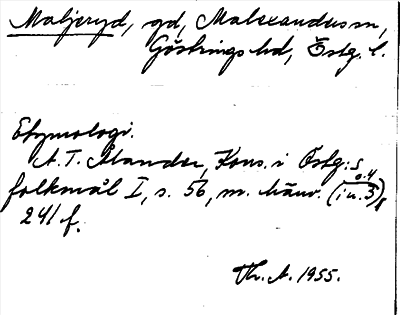 Maljeryd, gd, Malexanders sn,
Göstrings hd, Östg. l.
Etymologi.
A. T. Ålander, Kons. i Östg:s
folkmål I, s. 56, m. hänv. (i n. 3),
o. 4
241 f.
Th. A. 1955.